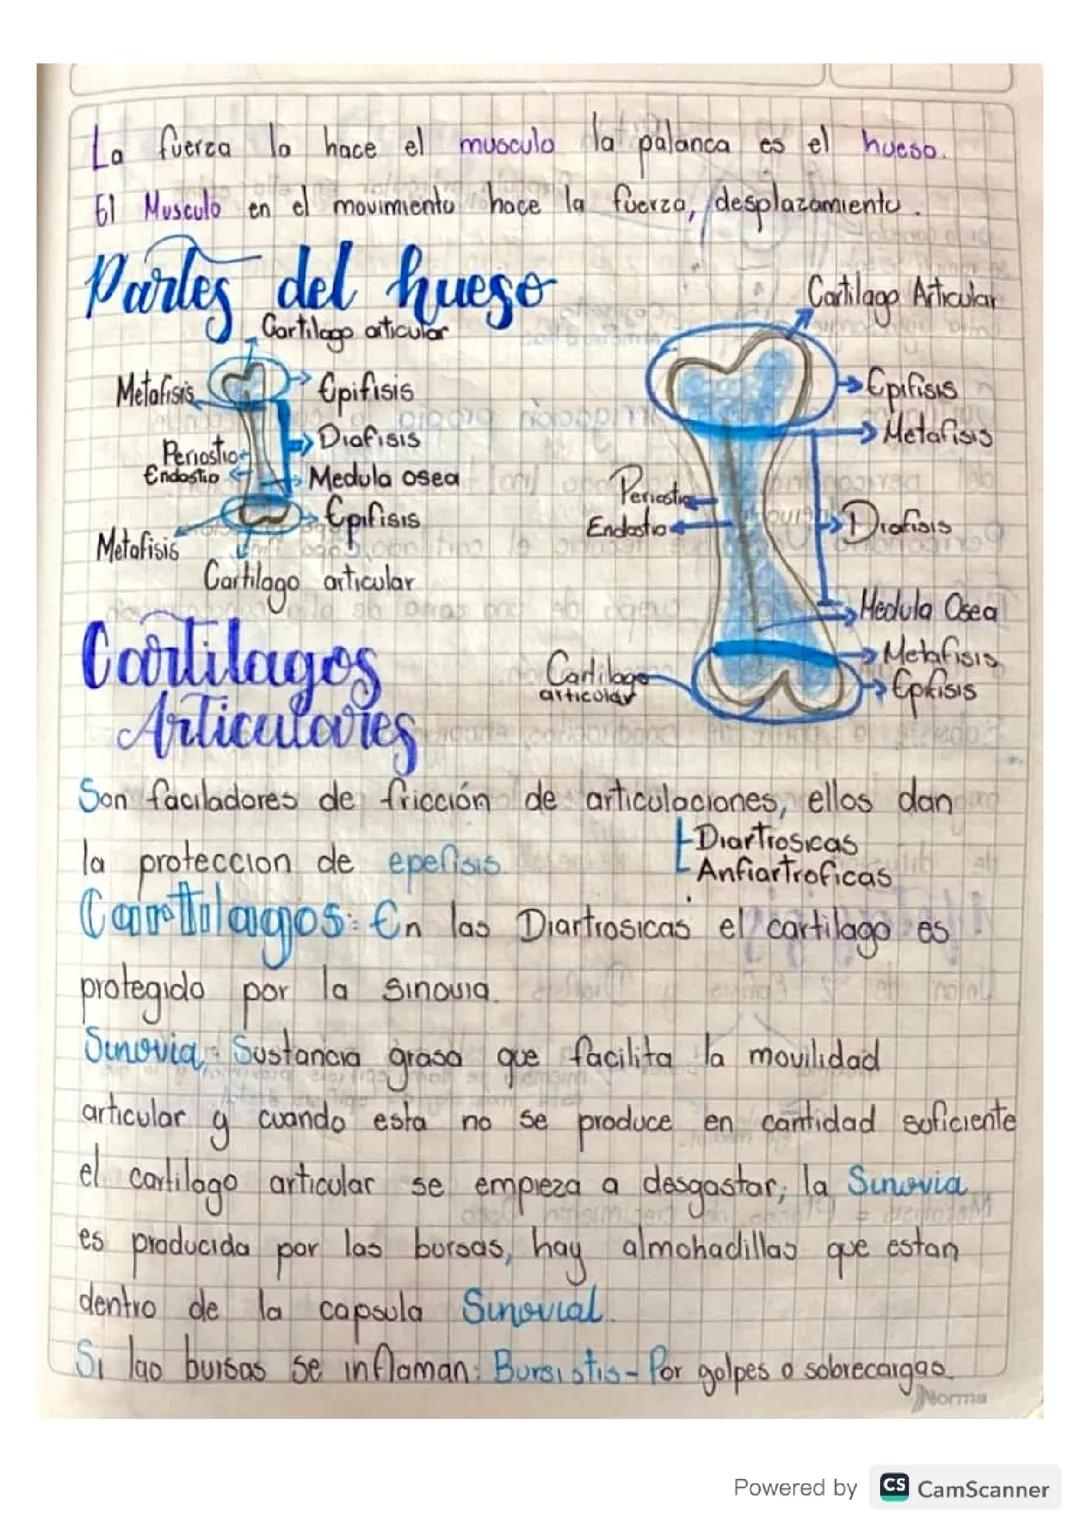 La fuerza la hace el musculo la palanca es el hueso.
El Musculo en el movimiento hace la fuerza, desplazamiento.
Partes del hueso
Cartilago articular
Metafisis
Epifisis
Diafisis
Periostio
Endostio
Medula osea
Epifisis
Metafisis
Cartilago articular
Cartilago Articular
Epifisis
Metafisis
Periostio
Endostio
Diafisis
Medula Osea
Metafisis
Epifisis
Cartilago
articular
Cartilagos
Articulares
Son faciladores de fricción de articulaciones, ellos dan
Diartrosicas
la proteccion de epefisis.
Anfiartroficas
Carttilagos: En las Diartrosicas el cartilago es
protegido por la sinovia.
Sinovia: Sustancia grasa que facilita la movilidad
articular y cuando esta no se produce en cantidad suficiente
el cartilago articular se empieza a desgastar, la Sinovia
es producida por las bursas, hay almohadillas que estan
dentro de la capsula Sinovial.
Si lao bursas se inflaman: Bursistis - Por golpes o sobrecargas.
Norma
Powered by CS CamScanner